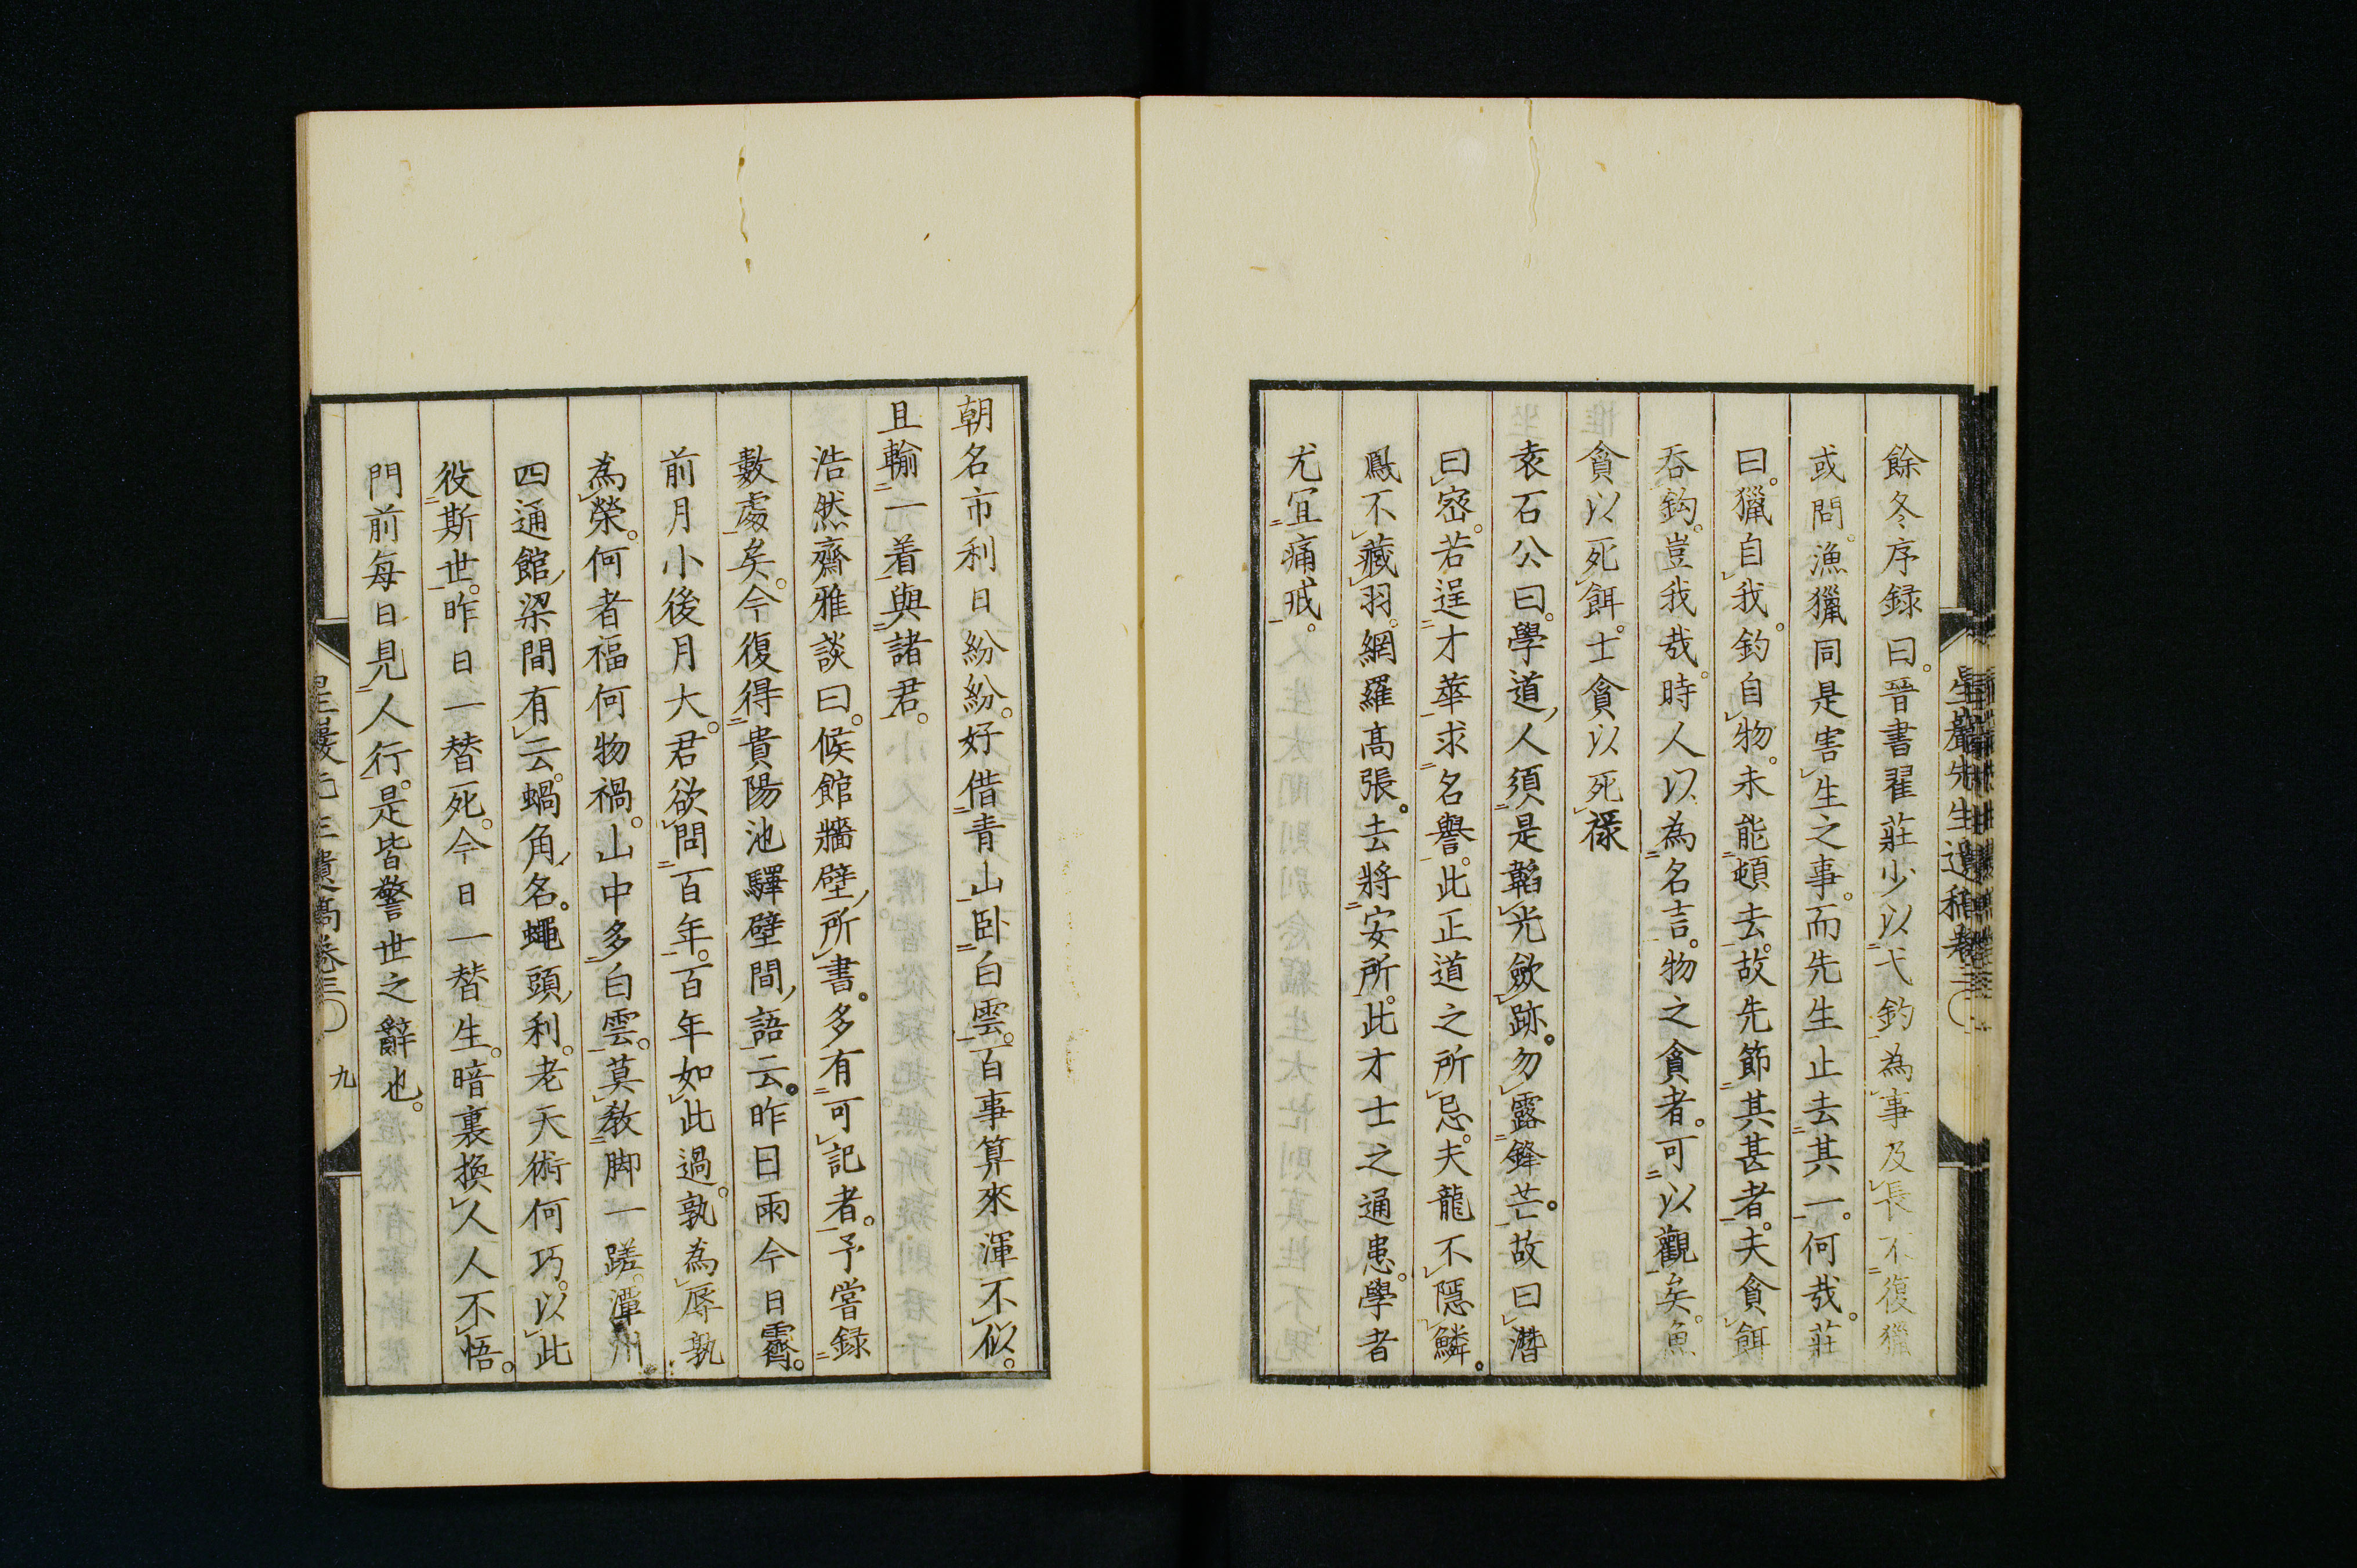 餘冬序録曰。晉書翟莊少以弋釣為事及長不復獵
或問。漁獵同是害生之事。而先生止去其一。何哉。莊
曰。獵自我。釣自物。未能頓去。故先節其甚者。夫貪餌
吞鈎。豈我哉。時人以為名言。物之貪者。可以觀矣。魚
貪以死餌。士貪以死祿
袁石公曰。學道人須是韜光斂跡。勿露鋒芒。故曰潛
曰密。若逞才華求名譽。此正道之所忌。夫龍不隱鱗。
鳳不藏羽。網羅髙張。去將安所。此才士之通患。學者
尤宜痛戒。
朝名市利日紛紛。好借青山卧白雲。百事算來渾不似。
且輸一着與諸君。
浩然齋雅談曰。候館牆壁所書。多有可記者。予嘗録
數處矣。今復得貴陽池驛壁間語云。昨日雨今日霽。
前月小後月大。君欲問百年。百年如此過。孰為辱孰
為榮。何者福何物禍。山中多白雲。莫教脚一蹉。潭州
四通館梁間有云。蝸角名。蠅頭利。老天術何巧。以此
役斯世。昨日一替死。今日一替生。暗裏換人人不悟。
門前每日見人行。是皆警世之辭也。
九